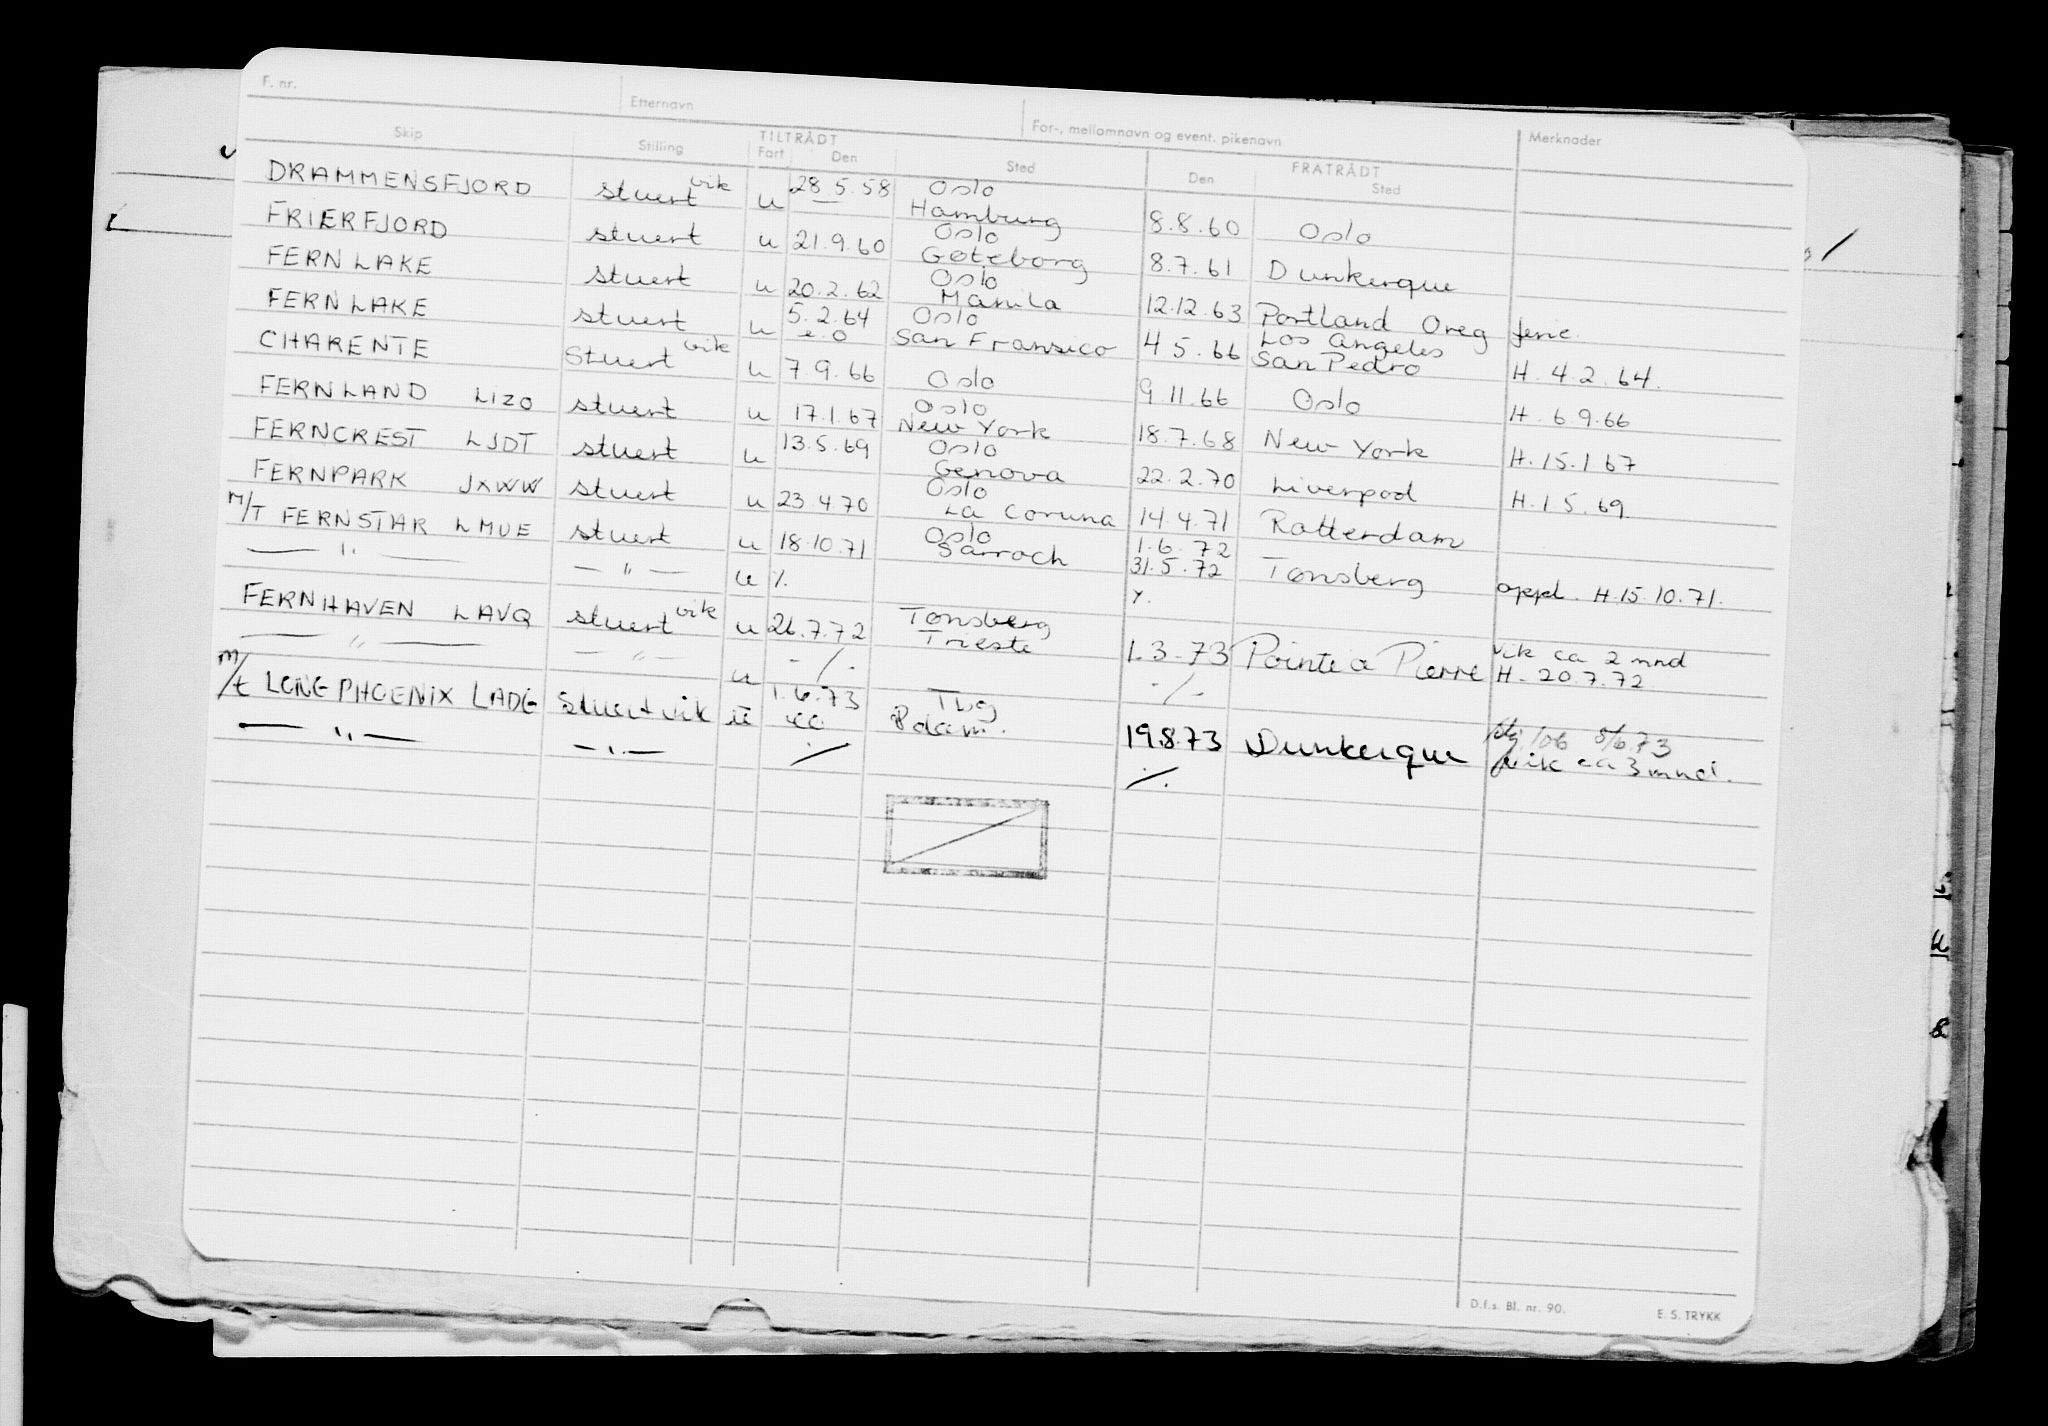 F. nr. Etternavn For-, mellomnavn og event. pikenavn Merknader
Skip Stilling TILTRÅDT FRATRÅDT
Fart Den Sted Den Sted
DRAMMENSFJORD stuert vik u 28.5.58 Oslo Hamburg 8.8.60 Oslo
FRIERFJORD stuert u 21.9.60 Oslo Gøteborg 8.7.61 Dunkerque
FERNLAKE stuert u 20.2.62 Oslo Manila 12.12.63 Portland Oreg ferie.
FERNLAKE stuert u 5.2.64 e.o Oslo San Fransico 4.5.66 Los Angeles San Pedro H. 4.2.64.
CHARENTE Stuert vik u 7.9.66 Oslo 9.11.66 Oslo H. 6.9.66
FERNLAND LIZO stuert u 17.1.67 Oslo New York 18.7.68 New York H. 15.1 67
FERNCREST LJDT stuert u 13.5.69 Oslo Genova 22.2.70 Liverpool H. 1.5.69
FERNPARK JXWW stuert u 23.4.70 Oslo La Coruna 14.4.71 Rotterdam
M/T FERNSTAR LMUE stuert u 18.10.71 Oslo Sarroch 1.6.72 31.5.72 Tønsberg oppd. H. 15.10.71.
— " — — " — u ·/. ·/.
FERNHAVEN LAVQ stuert vik u 26.7.72 Tønsberg Trieste 1.3.73 Pointe a Pierre vik ca 2 mnd H. 20.7.72.
— " — — " — u ·/. ·/.
M/t LONG PHOENIX LADG Stuert vik u 1.6.73 Tbg Rdam. 19.8.73 Dunkerque 5/6.73 vik ca 3 mnd.
— " — — " — ·/. ·/.
D.f.s. Bl. nr. 90. E. S. TRYKK